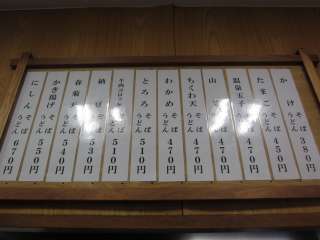 かけ そば うどん 380円
たまご そば うどん 450円
温泉玉子 そば うどん 470円
山 そば うどん 470円
ちくわ天 そば うどん 470円
わかめ そば うどん 470円
とろろ そば うどん 510円
そば うどん 510円
納豆 そば うどん 530円
春菊天 そば うどん 540円
かき揚げ そば うどん 550円
にしん そば うどん 670円